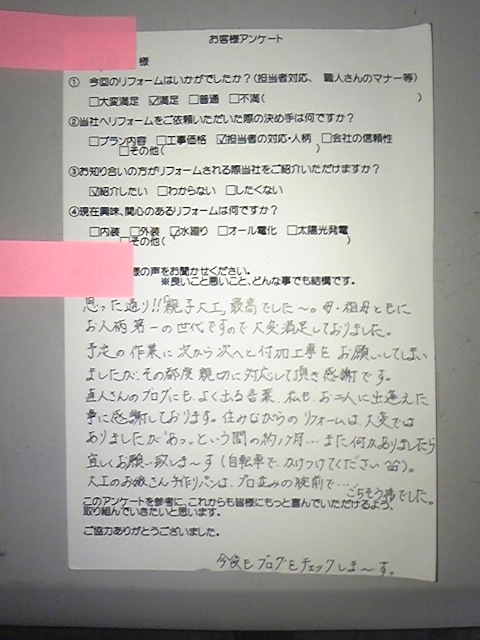 お客様アンケート
様
① 今回のリフォームはいかがでしたか?(担当者対応、 職人さんのマナー等)
□大変満足 ☑満足 □普通 □不満( )
②当社へリフォームをご依頼いただいた際の決め手は何ですか?
□プラン内容 □工事価格 ☑担当者の対応・人柄 □会社の信頼性
□その他( )
③お知り合いの方がリフォームされる際当社をご紹介いただけますか?
☑紹介したい □わからない □したくない
④現在興味、関心のあるリフォームは何ですか?
□内装 □外装 ☑水廻り □オール電化 □太陽光発電
□その他( )
様の声をお聞かせください。
※良いこと悪いこと、どんな事でも結構です。
思った通り!!「親子大工」最高でした〜。母・祖母ともに
お人柄第一の世代ですので大変満足しておりました。
予定の作業に次から次へと付加工事をお願いしてしまい
ましたが、その都度親切に対応して頂き感謝です。
直人さんのブログにも、よく出る言葉、私も、お二人に出逢えた
事に感謝しております。住みながらのリフォームは、大変では
ありましたが"あっ"という間の約1ヶ月…また何かありましたら
宜しくお願い致しま〜す(自転車で、かけつけてください 笛)。
大工のお嫁さん手作りパンは、プロ並みの腕前で…
ごちそう様でした。
このアンケートを参考に、これからも皆様にもっと喜んでいただけるよう、
取り組んでいきたいと思います。
ご協力ありがとうございました。
今後もブログをチェックしま〜す。